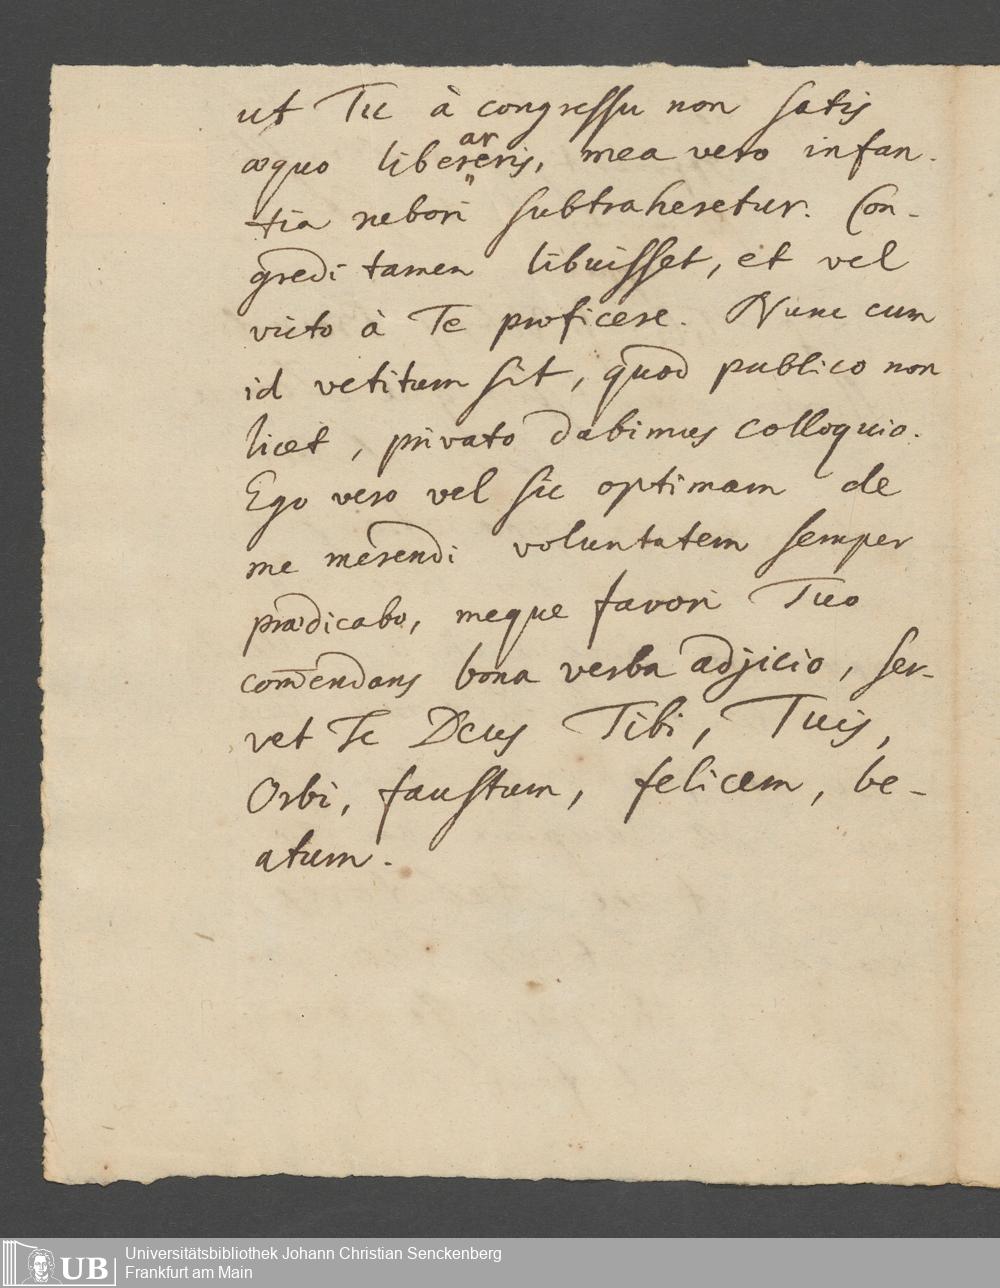 ut Tu à congressu non satis
æquo liberareris, mea vero infan-
tia rubori subtraheretur. Con-
gredi tamen libuisset, et vel
victo à Te proficere. Nunc cum
id vetitum sit, quod publico non
licet, privato dabimus colloquio.
Ego vero vel sic optimam de
me merendi voluntatem semper
prædicabo, meque favori Tuo
com̄endans bona verba adjicio, ser-
vet Te Deus Tibi, Tuis,
Orbi, faustum, felicem, be-
atum.
UB
Universitätsbibliothek Johann Christian Senckenberg
Frankfurt am Main